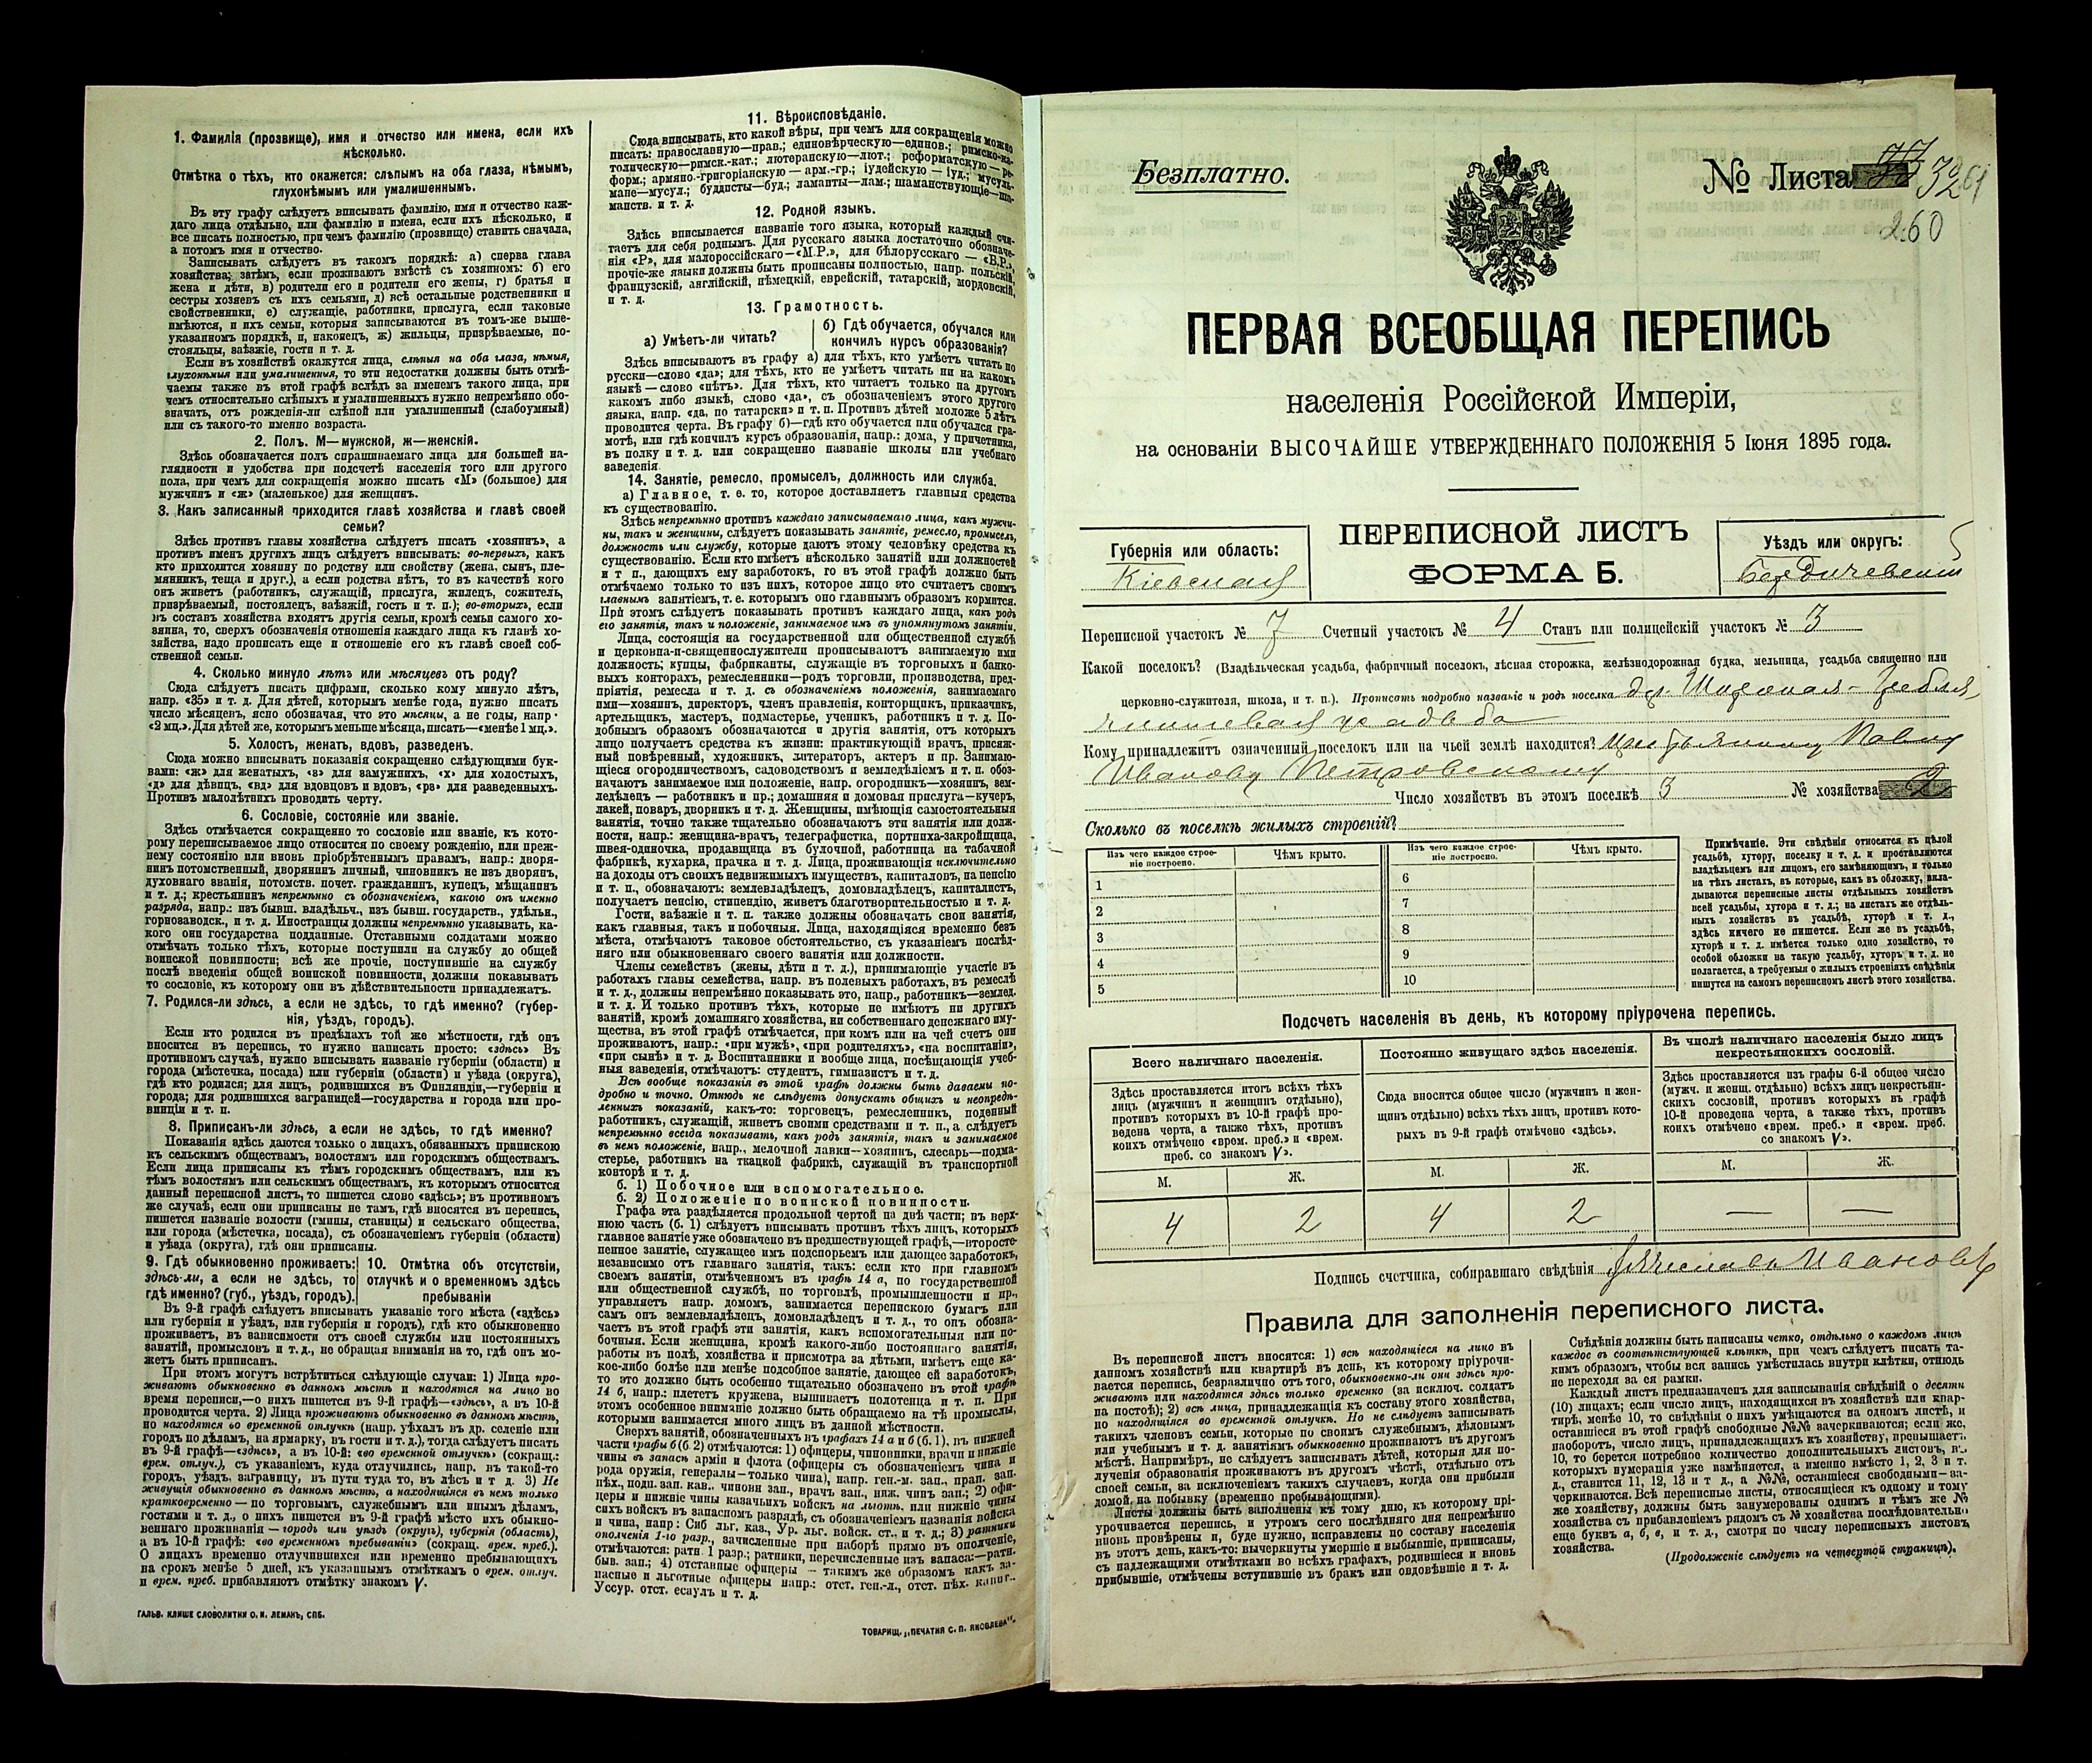 1. Фамилія (прозвище), имя и отчество или имена, если ихъ
нѣсколько.
Отмѣтка о тѣхъ, кто окажется: слѣпымъ на оба глаза, нѣмымъ,
глухонѣмымъ или умалишеннымъ.
Въ эту графу слѣдуетъ вписывать фамилію, имя и отчество каж-
даго лица отдѣльно, или фамилію и имена, если ихъ нѣсколько, и
все писать полностью, при чемъ фамилію (прозвище) ставить сначала,
а потомъ имя и отчество.
Записывать слѣдуетъ въ такомъ порядкѣ: а) сперва глава
хозяйства; затѣмъ, если проживаютъ вмѣстѣ съ хозяиномъ: б) его
жена и дѣти, в) родители его и родители его жены, г) братья и
сестры хозяевъ съ ихъ семьями, д) всѣ остальные родственники и
свойственники, е) служащіе, работники, прислуга, если таковые
имѣются, и ихъ семьи, которыя записываются въ томъ-же выше-
указанномъ порядкѣ, и, наконецъ, ж) жильцы, призрѣваемые, по-
стояльцы, заѣзжіе, гости и т. д.
Если въ хозяйствѣ окажутся лица, слѣпыя на оба глаза, нѣмыя,
глухонѣмыя или умалишенныя, то эти недостатки должны быть отмѣ-
чаемы также въ этой графѣ вслѣдъ за именемъ такого лица, при
чемъ относительно слѣпыхъ и умалишенныхъ нужно непремѣнно обо-
значать, отъ рожденія-ли слѣпой или умалишенный (слабоумный)
или съ такого-то именно возраста.
2. Полъ. М—мужской, ж—женскій.
Здѣсь обозначается полъ спрашиваемаго лица для большей на-
глядности и удобства при подсчетѣ населенія того или другого
пола, при чемъ для сокращенія можно писать «М» (большое) для
мужчинъ и «ж» (маленькое) для женщинъ.
3. Какъ записанный приходится главѣ хозяйства и главѣ своей
семьи?
Здѣсь противъ главы хозяйства слѣдуетъ писать «хозяинъ», а
противъ именъ другихъ лицъ слѣдуетъ вписывать: во-первыхъ, какъ
кто приходится хозяину по родству или свойству (жена, сынъ, пле-
мянникъ, теща и друг.), а если родства нѣтъ, то въ качествѣ кого
онъ живетъ (работникъ, служащій, прислуга, жилецъ, сожитель,
призрѣваемый, постоялецъ, заѣзжій, гость и т. п.); во-вторыхъ, если
въ составъ хозяйства входятъ другія семьи, кромѣ семьи самого хо-
зяина, то, сверхъ обозначенія отношенія каждаго лица къ главѣ хо-
зяйства, надо прописать еще и отношеніе его къ главѣ своей соб-
ственной семьи.
4. Сколько минуло лѣтъ или мѣсяцевъ отъ роду?
Сюда слѣдуетъ писать цифрами, сколько кому минуло лѣтъ,
напр. «35» и т. д. Для дѣтей, которымъ менѣе года, нужно писать
число мѣсяцевъ, ясно обозначая, что это мѣсяцы, а не годы, напр.
«2 мц.». Для дѣтей же, которымъ меньше мѣсяца, писать—«менѣе 1 мц.».
5. Холостъ, женатъ, вдовъ, разведенъ.
Сюда можно вписывать показанія сокращенно слѣдующими бук-
вами: «ж» для женатыхъ, «з» для замужнихъ, «х» для холостыхъ,
«д» для дѣвицъ, «вд» для вдовцовъ и вдовъ, «рз» для разведенныхъ.
Противъ малолѣтнихъ проводить черту.
6. Сословіе, состояніе или званіе.
Здѣсь отмѣчается сокращенно то сословіе или званіе, къ кото-
рому переписываемое лицо относится по своему рожденію, или преж-
нему состоянію или вновь пріобрѣтеннымъ правамъ, напр.: дворя-
нинъ потомственный, дворянинъ личный, чиновникъ не изъ дворянъ,
духовнаго званія, потомств. почет. гражданинъ, купецъ, мѣщанинъ
и т. д.; крестьянинъ непремѣнно съ обозначеніемъ, какого онъ именно
разряда, напр.: изъ бывш. владѣльч., изъ бывш. государств., удѣльн.,
горнозаводск., и т. д. Иностранцы должны непремѣнно указывать, ка-
кого они государства подданные. Отставными солдатами можно
отмѣчать только тѣхъ, которые поступили на службу до общей
воинской повинности; всѣ же прочіе, поступившіе на службу
послѣ введенія общей воинской повинности, должны показывать
то сословіе, къ которому они въ дѣйствительности принадлежатъ.
7. Родился-ли здѣсь, а если не здѣсь, то гдѣ именно? (губер-
нія, уѣздъ, городъ).
Если кто родился въ предѣлахъ той же мѣстности, гдѣ онъ
вносится въ перепись, то нужно написать просто: «здѣсь» Въ
противномъ случаѣ, нужно вписывать названіе губерніи (области) и
города (мѣстечка, посада) или губерніи (области) и уѣзда (округа),
гдѣ кто родился; для лицъ, родившихся въ Финляндіи,—губерніи и
города; для родившихся заграницей—государства и города или про-
винціи и т. п.
8. Приписанъ-ли здѣсь, а если не здѣсь, то гдѣ именно?
Показанія здѣсь даются только о лицахъ, обязанныхъ припискою
къ сельскимъ обществамъ, волостямъ или городскимъ обществамъ.
Если лица приписаны къ тѣмъ городскимъ обществамъ, или къ
тѣмъ волостямъ или сельскимъ обществамъ, къ которымъ относится
данный переписной листъ, то пишется слово «здѣсь»; въ противномъ
же случаѣ, если они приписаны не тамъ, гдѣ вносятся въ перепись,
пишется названіе волости (гмины, станицы) и сельскаго общества,
или города (мѣстечка, посада), съ обозначеніемъ губерніи (области)
и уѣзда (округа), гдѣ они приписаны.
9. Гдѣ обыкновенно проживаетъ:
здѣсь-ли, а если не здѣсь, то
гдѣ именно? (губ., уѣздъ, городъ).
10. Отмѣтка объ отсутствіи,
отлучкѣ и о временномъ здѣсь
пребываніи
Въ 9-й графѣ слѣдуетъ вписывать указаніе того мѣста («здѣсь»
или губернія и уѣздъ, или губернія и городъ), гдѣ кто обыкновенно
проживаетъ, въ зависимости отъ своей службы или постоянныхъ
занятій, промысловъ и т. д., не обращая вниманія на то, гдѣ онъ мо-
жетъ быть приписанъ.
При этомъ могутъ встрѣтиться слѣдующіе случаи: 1) Лица про-
живаютъ обыкновенно въ данномъ мѣстѣ и находятся на лицо во
время переписи,—о нихъ пишется въ 9-й графѣ—«здѣсь», а въ 10-й
проводится черта. 2) Лица проживаютъ обыкновенно въ данномъ мѣстѣ,
но находятся во временной отлучкѣ (напр. уѣхалъ въ др. селеніе или
городъ по дѣламъ, на ярмарку, въ гости и т. д.), тогда слѣдуетъ писать
въ 9-й графѣ—«здѣсь», а въ 10-й: «во временной отлучкѣ» (сокращ.:
врем. отлуч.), съ указаніемъ, куда отлучились, напр. въ такой-то
городъ, уѣздъ, заграницу, въ пути туда то, въ лѣсъ и т д. 3) Не
живущія обыкновенно въ данномъ мѣстѣ, а находящіяся въ немъ только
кратковременно — по торговымъ, служебнымъ или инымъ дѣламъ,
гостями и т. д., о нихъ пишется въ 9-й графѣ мѣсто ихъ обыкно-
веннаго проживанія — городъ или уѣздъ (округъ), губернія (область),
а въ 10-й графѣ: «во временномъ пребываніи» (сокращ. врем. преб.).
О лицахъ временно отлучившихся или временно пребывающихъ
на срокъ менѣе 5 дней, къ указаннымъ отмѣткамъ о врем. отлуч.
и врем. преб. прибавляютъ отмѣтку знакомъ V.
ГАЛЬВ. КЛИШЕ СЛОВОЛИТНИ О. И. ЛЕМАНЪ, СПБ.
11. Вѣроисповѣданіе.
Сюда вписывать, кто какой вѣры, при чемъ для сокращенія можно
писать: православную—прав.; единовѣрческую—единов.; римско-ка-
толическую—римск.-кат.; лютеранскую—лют.; реформатскую — ре-
форм.; армяно.-григоріанскую — арм.-гр.; іудейскую — іуд.; мусуль-
мане—мусул.; буддисты—буд.; ламаиты—лам.; шаманствующіе—ша-
манств. и т. д.
12. Родной языкъ.
Здѣсь вписывается названіе того языка, который каждый счи-
таетъ для себя роднымъ. Для русскаго языка достаточно обозначе-
нія «Р», для малороссійскаго—«М.Р.», для бѣлорусскаго — «Б.Р.»,
прочіе-же языки должны быть прописаны полностью, напр. польскій,
французскій, англійскій, нѣмецкій, еврейскій, татарскій, мордовскій,
и т. д.
13. Грамотность.
а) Умѣетъ-ли читать?
б) Гдѣ обучается, обучался или
кончилъ курсъ образованія?
Здѣсь вписываютъ въ графу а) для тѣхъ, кто умѣетъ читать по
русски—слово «да»; для тѣхъ, кто не умѣетъ читать ни на какомъ
языкѣ — слово «нѣтъ». Для тѣхъ, кто читаетъ только на другомъ
какомъ либо языкѣ, слово «да», съ обозначеніемъ этого другого
языка, напр. «да, по татарски» и т. п. Противъ дѣтей моложе 5 лѣтъ
проводится черта. Въ графу б)—гдѣ кто обучается или обучался гра-
мотѣ, или гдѣ кончилъ курсъ образованія, напр.: дома, у причетника,
въ полку и т. д. или сокращенно названіе школы или учебнаго
заведенія.
14. Занятіе, ремесло, промыселъ, должность или служба.
а) Главное, т. е. то, которое доставляетъ главныя средства
къ существованію.
Здѣсь непремѣнно противъ каждаго записываемаго лица, какъ мужчи-
ны, такъ и женщины, слѣдуетъ показывать занятіе, ремесло, промыселъ,
должность или службу, которые даютъ этому человѣку средства къ
существованію. Если кто имѣетъ нѣсколько занятій или должностей
и т п., дающихъ ему заработокъ, го въ этой графѣ должно быть
отмѣчаемо только то изъ нихъ, которое лицо это считаетъ своимъ
главнымъ занятіемъ, т. е. которымъ оно главнымъ образомъ кормится.
При этомъ слѣдуетъ показывать противъ каждаго лица, какъ родъ
его занятія, такъ и положеніе, занимаемое имъ въ упомянутомъ занятіи.
Лица, состоящія на государственной или общественной службѣ
и церковно-и-священнослужители прописываютъ занимаемую ими
должность; купцы, фабриканты, служащіе въ торговыхъ и банко-
выхъ конторахъ, ремесленники—родъ торговли, производства, пред-
пріятія, ремесла и т. д. съ обозначеніемъ положенія, занимаемаго
ими—хозяинъ, директоръ, членъ правленія, конторщикъ, приказчикъ,
артельщикъ, мастеръ, подмастерье, ученикъ, работникъ и т. д. По-
добнымъ образомъ обозначаются и другія занятія, отъ которыхъ
лицо получаетъ средства къ жизни: практикующій врачъ, присяж-
ный повѣренный, художникъ, литераторъ, актеръ и пр. Занимаю-
щіеся огородничествомъ, садоводствомъ и земледѣліемъ и т. п. обоз-
начаютъ занимаемое ими положеніе, напр. огородникъ—хозяинъ, зем-
ледѣлецъ — работникъ и пр.; домашняя и домовая прислуга—кучеръ,
лакей, поваръ, дворникъ и т. д. Женщины, имѣющія самостоятельныя
занятія, точно также тщательно обозначаютъ эти занятія или долж-
ности, напр.: женщина-врачъ, телеграфистка, портниха-закройщица,
швея-одиночка, продавщица въ булочной, работница на табачной
фабрикѣ, кухарка, прачка и т. д. Лица, проживающія исключительно
на доходы отъ своихъ недвижимыхъ имуществъ, капиталовъ, на пенсію
и т. п., обозначаютъ: землевладѣлецъ, домовладѣлецъ, капиталистъ,
получаетъ пенсію, стипендію, живетъ благотворительностью и т. д.
Гости, заѣзжіе и т. п. также должны обозначать свои занятія,
какъ главныя, такъ и побочныя. Лица, находящіяся временно безъ
мѣста, отмѣчаютъ таковое обстоятельство, съ указаніемъ послѣд-
няго или обыкновеннаго своего занятія или должности.
Члены семействъ (жены, дѣти и т. д.), принимающіе участіе въ
работахъ главы семейства, напр. въ полевыхъ работахъ, въ ремеслѣ
и т. д., должны непремѣнно показывать это, напр., работникъ—землед.
и т. д. И только противъ тѣхъ, которые не имѣютъ ни другихъ
занятій, кромѣ домашняго хозяйства, ни собственнаго денежнаго иму-
щества, въ этой графѣ отмѣчается, при комъ или на чей счетъ они
проживаютъ, напр.: «при мужѣ», «при родителяхъ», «на воспитаніи»,
«при сынѣ» и т. д. Воспитанники и вообще лица, посѣщающія учеб-
ныя заведенія, отмѣчаютъ: студентъ, гимназистъ и т. д.
Всѣ вообще показанія въ этой графѣ должны быть даваемы по-
дробно и точно. Отнюдь не слѣдуетъ допускать общихъ и неопредѣ-
ленныхъ показаній, какъ-то: торговецъ, ремесленникъ, поденный
работникъ, служащій, живетъ своими средствами и т. п., а слѣдуетъ
непремѣнно всегда показывать, какъ родъ занятія, такъ и занимаемое
въ немъ положеніе, напр., мелочной лавки—хозяинъ, слесарь—подма-
стерье, работникъ на ткацкой фабрикѣ, служащій въ транспортной
конторѣ и т. д.
б. 1) Побочное или вспомогательное.
б. 2) Положеніе по воинской повинности.
Графа эта раздѣляется продольной чертой на двѣ части; въ верх-
нюю часть (б. 1) слѣдуетъ вписывать противъ тѣхъ лицъ, которыхъ
главное занятіе уже обозначено въ предшествующей графѣ,—второсте-
пенное занятіе, служащее имъ подспорьемъ или дающее заработокъ,
независимо отъ главнаго занятія, такъ: если кто при главномъ
своемъ занятіи, отмѣченномъ въ графѣ 14 а, по государственной
или общественной службѣ, по торговлѣ, промышленности и пр.,
управляетъ напр. домомъ, занимается перепискою бумагъ или
самъ онъ землевладѣлецъ, домовладѣлецъ и т. д., то онъ обозна-
чаетъ въ этой графѣ эти занятія, какъ вспомогательныя или по-
бочныя. Если женщина, кромѣ какого-либо постояннаго занятія,
работы въ полѣ, хозяйства и присмотра за дѣтьми, имѣетъ еще ка-
кое-либо болѣе или менѣе подсобное занятіе, дающее ей заработокъ,
то это должно быть особенно тщательно обозначено въ этой графѣ
14 б, напр.: плететъ кружева, вышиваетъ полотенца и т. п. При
этомъ особенное вниманіе должно быть обращаемо на тѣ промыслы,
которыми занимается много лицъ въ данной мѣстности.
Сверхъ занятій, обозначенныхъ въ графахъ 14 а и б (б. 1), въ нижней
части графы б (б. 2) отмѣчаются: 1) офицеры, чиновники, врачи и нижніе
чины въ запасѣ арміи и флота (офицеры съ обозначеніемъ чина и
рода оружія, генералы—только чина), напр. ген-м. зап., прап. зап.
пѣх., подп. зап. кав., чиновн зап., врачъ зап., ниж. чинъ зап.; 2) офи-
церы и нижніе чины казачьихъ войскъ на льготѣ, или нижніе чины
сихъ войскъ въ запасномъ разрядѣ, съ обозначеніемъ названія войска
и чина, напр: Сиб льг. каз., Ур. льг. войск. ст., и т. д.; 3) ратники
ополченія 1-го разр., зачисленные при наборѣ прямо въ ополченіе,
отмѣчаются: ратн. 1 разр.; ратники, перечисленные изъ запаса:—ратн.
быв. зап.; 4) отставные офицеры — такимъ же образомъ какъ за-
пасные и льготные офицеры напр.: отст. ген.-л., отст. пѣх. капит.,
Уссур. отст. есаулъ и т. д.
ТОВАРИЩ. „ПЕЧАТНЯ С. П. ЯКОВЛЕВА".
Безплатно.
№ Листа 32 61
260
ПЕРВАЯ ВСЕОБЩАЯ ПЕРЕПИСЬ
населенія Россійской Имперіи,
на основаніи ВЫСОЧАЙШЕ УТВЕРЖДЕННАГО ПОЛОЖЕНІЯ 5 Іюня 1895 года.
Губернія или область:
Кіевская
ПЕРЕПИСНОЙ ЛИСТЪ
ФОРМА Б.
Уѣздъ или округъ:
Бердичевскій
Переписной участокъ № 7 Счетный участокъ № 4 Станъ или полицейскій участокъ № 3
Какой поселокъ? (Владѣльческая усадьба, фабричный поселокъ, лѣсная сторожка, желѣзнодорожная будка, мельница, усадьба священно или
церковно-служителя, школа, и т. п.). Прописать подробно названіе и родъ поселка дер. Широкая-Гребля
усадьба
Кому принадлежитъ означенный поселокъ или на чьей землѣ находится? крестьянину Павлу
Иванову Петровскому
Число хозяйствъ въ этомъ поселкѣ 3 № хозяйства 2
Сколько въ поселкѣ жилыхъ строеній?
Изъ чего каждое строе-
ніе построено.
Чѣмъ крыто.
Изъ чего каждое строе-
ніе построено.
Чѣмъ крыто.
1
2
3
4
5
6
7
8
9
10
Примѣчаніе. Эти свѣдѣнія относятся къ цѣлой
усадьбѣ, хутору, поселку и т. д. и проставляются
владѣльцемъ или лицомъ, его замѣняющимъ, и только
на тѣхъ листахъ, въ которые, какъ въ обложку, вкла-
дываются переписные листы отдѣльныхъ хозяйствъ
всей усадьбы, хутора и т. д.; на листахъ же отдѣль-
ныхъ хозяйствъ въ усадьбѣ, хуторѣ и т. д.,
здѣсь ничего не пишется. Если же въ усадьбѣ,
хуторѣ и т. д. имѣется только одно хозяйство, то
особой обложки на такую усадьбу, хуторъ и т. д. не
полагается, а требуемыя о жилыхъ строеніяхъ свѣдѣнія
пишутся на самомъ переписномъ листѣ этого хозяйства.
Подсчетъ населенія въ день, къ которому пріурочена перепись.
Всего наличнаго населенія.
Здѣсь проставляется итогъ всѣхъ тѣхъ
лицъ (мужчинъ и женщинъ отдѣльно),
противъ которыхъ въ 10-й графѣ про-
ведена черта, а также тѣхъ, противъ
коихъ отмѣчено «врем. преб.» и «врем.
преб. со знакомъ V».
Постоянно живущаго здѣсь населенія.
Сюда вносится общее число (мужчинъ и жен-
щинъ отдѣльно) всѣхъ тѣхъ лицъ, противъ кото-
рыхъ въ 9-й графѣ отмѣчено «здѣсь».
Въ числѣ наличнаго населенія было лицъ
некрестьянскихъ сословій.
Здѣсь проставляется изъ графы 6-й общее число
(мужч. и женщ. отдѣльно) всѣхъ лицъ некрестьян-
скихъ сословій, противъ которыхъ въ графѣ
10-й проведена черта, а также тѣхъ, противъ
коихъ отмѣчено «врем. преб.» и «врем. преб.
со знакомъ V».
М. Ж. М. Ж. М. Ж.
4 2 4 2 — —
Подпись счетчика, собиравшаго свѣдѣнія Вячеславъ Ивановъ
Правила для заполненія переписного листа.
Въ переписной листъ вносятся: 1) всѣ находящіеся на лицо въ
данномъ хозяйствѣ или квартирѣ въ день, къ которому пріурочи-
вается перепись, безразлично отъ того, обыкновенно-ли они здѣсь про-
живаютъ или находятся здѣсь только временно (за исключ. солдатъ
на постоѣ); 2) всѣ лица, принадлежащія къ составу этого хозяйства,
но находящіяся во временной отлучкѣ. Но не слѣдуетъ записывать
такихъ членовъ семьи, которые по своимъ служебнымъ, дѣловымъ
или учебнымъ и т. д. занятіямъ обыкновенно проживаютъ въ другомъ
мѣстѣ. Напримѣръ, не слѣдуетъ записывать дѣтей, которыя для по-
лученія образованія проживаютъ въ другомъ мѣстѣ, отдѣльно отъ
своей семьи, за исключеніемъ такихъ случаевъ, когда они прибыли
домой на побывку (временно пребывающими).
Листы должны быть заполнены къ тому дню, къ которому прі-
урочивается перепись, и утромъ сего послѣдняго дня непремѣнно
вновь провѣрены и, буде нужно, исправлены по составу населенія
въ этотъ день, какъ-то: вычеркнуты умершіе и выбывшіе, приписаны,
съ надлежащими отмѣтками во всѣхъ графахъ, родившіеся и вновь
прибывшіе, отмѣчены вступившіе въ бракъ или овдовѣвшіе и т. д.
Свѣдѣнія должны быть написаны четко, отдѣльно о каждомъ лицѣ
каждое въ соотвѣтствующей клѣткѣ, при чемъ слѣдуетъ писать та-
кимъ образомъ, чтобы вся запись умѣстилась внутри клѣтки, отнюдь
не переходя за ея рамки.
Каждый листъ предназначенъ для записыванія свѣдѣній о десяти
(10) лицахъ; если число лицъ, находящихся въ хозяйствѣ или квар-
тирѣ, менѣе 10, то свѣдѣнія о нихъ умѣщаются на одномъ листѣ, и
оставшіеся въ этой графѣ свободные №№ зачеркиваются; если же,
наоборотъ, число лицъ, принадлежащихъ къ хозяйству, превышаетъ
10, то берется потребное количество дополнительныхъ листовъ, въ
которыхъ нумерація уже измѣняется, а именно вмѣсто 1, 2, 3 и т.
д., ставится 11, 12, 13 и т д., а №№, оставшіеся свободными—за-
черкиваются. Всѣ переписные листы, относящіеся къ одному и тому
же хозяйству, должны быть занумерованы однимъ и тѣмъ же №
хозяйства съ прибавленіемъ рядомъ съ № хозяйства послѣдовательно
еще буквъ а, б, в, и т. д., смотря по числу переписныхъ листовъ
хозяйства.
(Продолженіе слѣдуетъ на четвертой страницѣ).